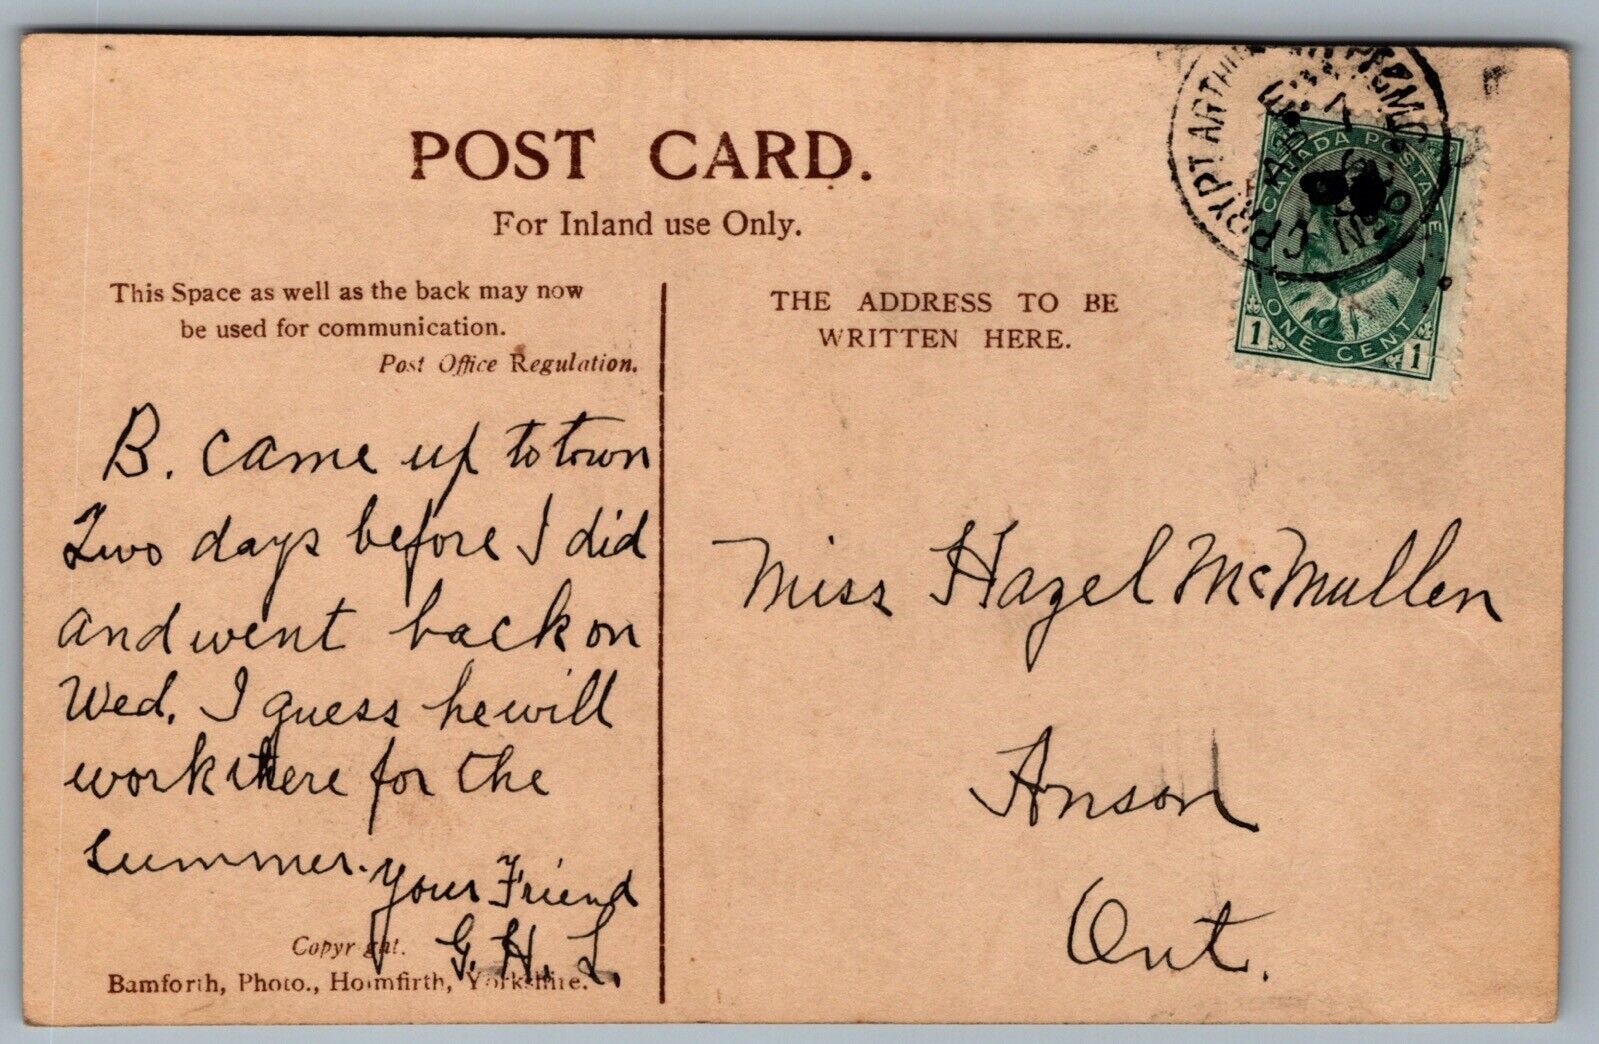 POST CARD.
For Inland use Only.
This Space as well as the back may now
be used for communication.
Post Office Regulation.
THE ADDRESS TO BE
WRITTEN HERE.
CANADA POSTAGE
1 ONE CENT 1
PT. ARTHUR
B. came up to town
Two days before I did
and went back on
Wed. I guess he will
work there for the
summer.
Your Friend
G. H. L.
Miss Hazel McMullen
Anson
Ont.
Copyright.
Bamforth, Photo., Holmfirth, Yorkshire.